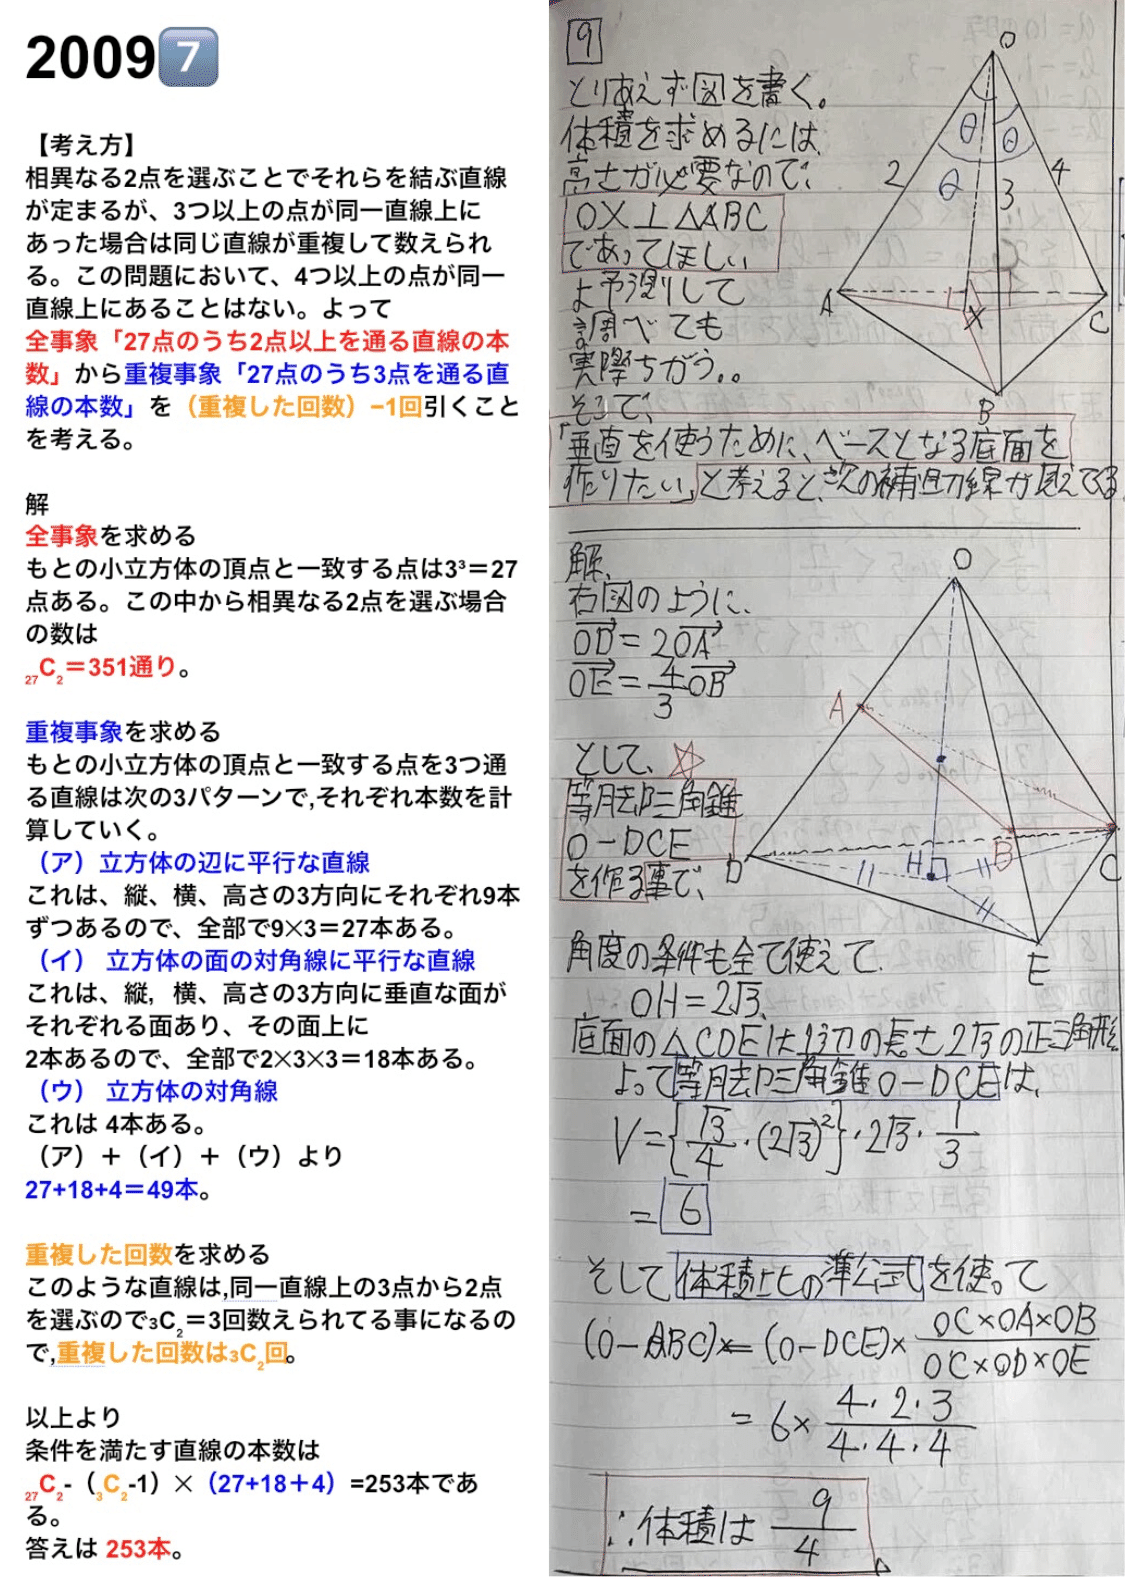 2009 7
【考え方】
相異なる2点を選ぶことでそれらを結ぶ直線
が定まるが、3つ以上の点が同一直線上に
あった場合は同じ直線が重複して数えられ
る。この問題において、4つ以上の点が同一
直線上にあることはない。よって
全事象「27点のうち2点以上を通る直線の本
数」から重複事象「27点のうち3点を通る直
線の本数」を（重複した回数）−1回引くこと
を考える。
解
全事象を求める
もとの小立方体の頂点と一致する点は3³＝27
点ある。この中から相異なる2点を選ぶ場合
の数は
₂₇C₂＝351通り。
重複事象を求める
もとの小立方体の頂点と一致する点を3つ通
る直線は次の3パターンで,それぞれ本数を計
算していく。
（ア）立方体の辺に平行な直線
これは、縦、横、高さの3方向にそれぞれ9本
ずつあるので、全部で9×3＝27本ある。
（イ） 立方体の面の対角線に平行な直線
これは、縦，横、高さの3方向に垂直な面が
それぞれる面あり、その面上に
2本あるので、全部で2×3×3＝18本ある。
（ウ） 立方体の対角線
これは 4本ある。
（ア）＋（イ）＋（ウ）より
27+18+4＝49本。
重複した回数を求める
このような直線は,同一直線上の3点から2点
を選ぶので₃C₂＝3回数えられてる事になるの
で,重複した回数は₃C₂回。
以上より
条件を満たす直線の本数は
₂₇C₂-（₃C₂-1）×（27+18＋4）=253本であ
る。
答えは 253本。
9
とりあえず図を書く。
体積を求めるには、
高さが必要なので、
OX⊥△ABC
であってほしい
と予測して
調べても
実際ちがう。。
そこで、
「垂直を使うために、ベースとなる底面を
作りたい」と考えると、次の補助線が見えてくる
O
θ
θ
θ
2
3
4
A
X
C
B
解、
右図のように、
OD = 2OA
OE = 4/3 OB
として、
等脚三角錐
O−DCE
を作る事で、
O
A
B
D
H
C
E
角度の条件も全て使えて、
OH = 2√3、
底面の△CDEは1辺の長さ2√3の正三角形
よって等脚三角錐O−DCEは、
V = {√3/4・(2√3)²}・2√3・1/3
= 6
そして体積比の準公式を使って
(O−ABC) = (O−DCE)× OC×OA×OB / OC×OD×OE
= 6× 4・2・3 / 4・4・4
∴体積は 9/4